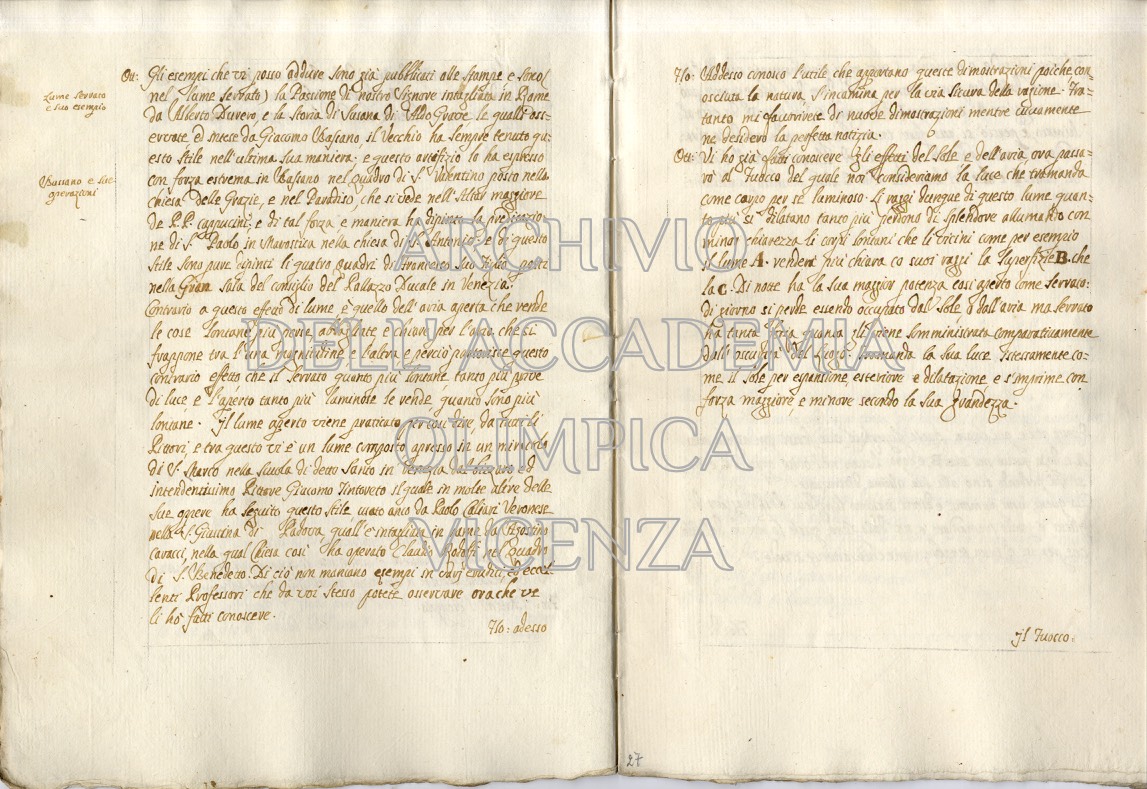 Ott: Gli esempi che vi posso addure sono già pubblicati alle stampe e sono (
Lume serrato
e suo esempio
nel lume serrato) la Passione di nostro Signore intagliata in Rame
da Alberto Durero e la storia di Susana di Aldo Gravie le quali oss=
ervate ed intese da Giacomo Bassano, il Vecchio ha sempre tenuto qu=
esto stile nell'ultima sua maniera. e questo artifizio lo ha espresso
Bassano e sue
operazioni
con forza estrema in Bassano nel quadro di S. Valentino posto nella
chiesa delle Grazie, e nel Paradiso, che si vede nell'Altar maggiore
de P.P. cappuccini, e di tal forza e maniera ha dipinto la predicazio=
ne di S. Paolo in Marostica nella chiesa di S. Antonio: e di questo
stile sono pure dipinti li quatro quadri di Francesco suo figlio posti
nella Gran Sala del consiglio del Palazzo Ducale in Venezia.
Contrario a questo effetto di lume è quello dell'aria aperta che rende
le cose lontane più perse, abbagliate e chiare per l'aria, che si
frappone tra l'una magnitudine e l'altra e perciò partorisce questo
contrario effetto che il serrato quanto più lontane tanto più prive
di luce e l'aperto tanto più luminose le rende quando sono più
lontane. Il lume aperto viene praticato per così dire, da tutti li
Pittori, e tra questo vi è un lume composto apresso in un miracolo
di S. Marco nella scuola di detto Santo in Venezia dal bizaro ed
intendentissimo Pittore Giacomo Tintoreto il quale in molte altre delle
sue opere ha seguito questo stile usato anco da Paolo Caliari Veronese
nella S. Giustina di Padova quall'è intagliata in rame da Agostino
Caracci, nella qual chiesa così ha operato Claudio Rodolfi nel quadro
di S. Benedetto. Di ciò non mancano esempi in varj eruditi, ed eccel=
lenti Professori che da voi stesso potete osservare ora che ve
li hò fatti conoscere.
Flo: adesso
Flo: Addesso conosco l'utile che apportano queste dimostrazioni poiche, con=
osciuta la natura, s'incamina per la via sicura della ragione. Fra=
tanto mi favorirete di nuove dimostrazioni mentre vivamente
ne desidero la perfetta notizia.
Ott: Vi hò già fatti conoscere gli effetti del Sole, e dell'aria, ora passa=
rò al Fuocco del quale noi consideriamo la luce che tramanda
come corpo per se laminoso. Li raggi dunque di questo lume quan=
to più si dilatano tanto più perdono di splendore allumando con
minor chiarezza li corpi lontani che li vicini come per esempio
il lume A. renderà più chiara co suoi raggi la superfizie B. che
la C. Di notte ha la sua maggior potenza così aperto come serrato:
di giorno si perde essendo occupato dal Sole, ò dall'aria ma serrato
ha tanta forza quanta gli viene somministrata comparativamente
dall'oscurità del luogo. tramanda la sua luce istessamente co=
me il Sole per espansione, esteriore e dilatazione, e s'imprime con
forza maggiore, e minore secondo la sua grandezza.
Il Fuocco.
27
ARCHIVIO
DELL'ACCADEMIA
OLIMPICA
VICENZA